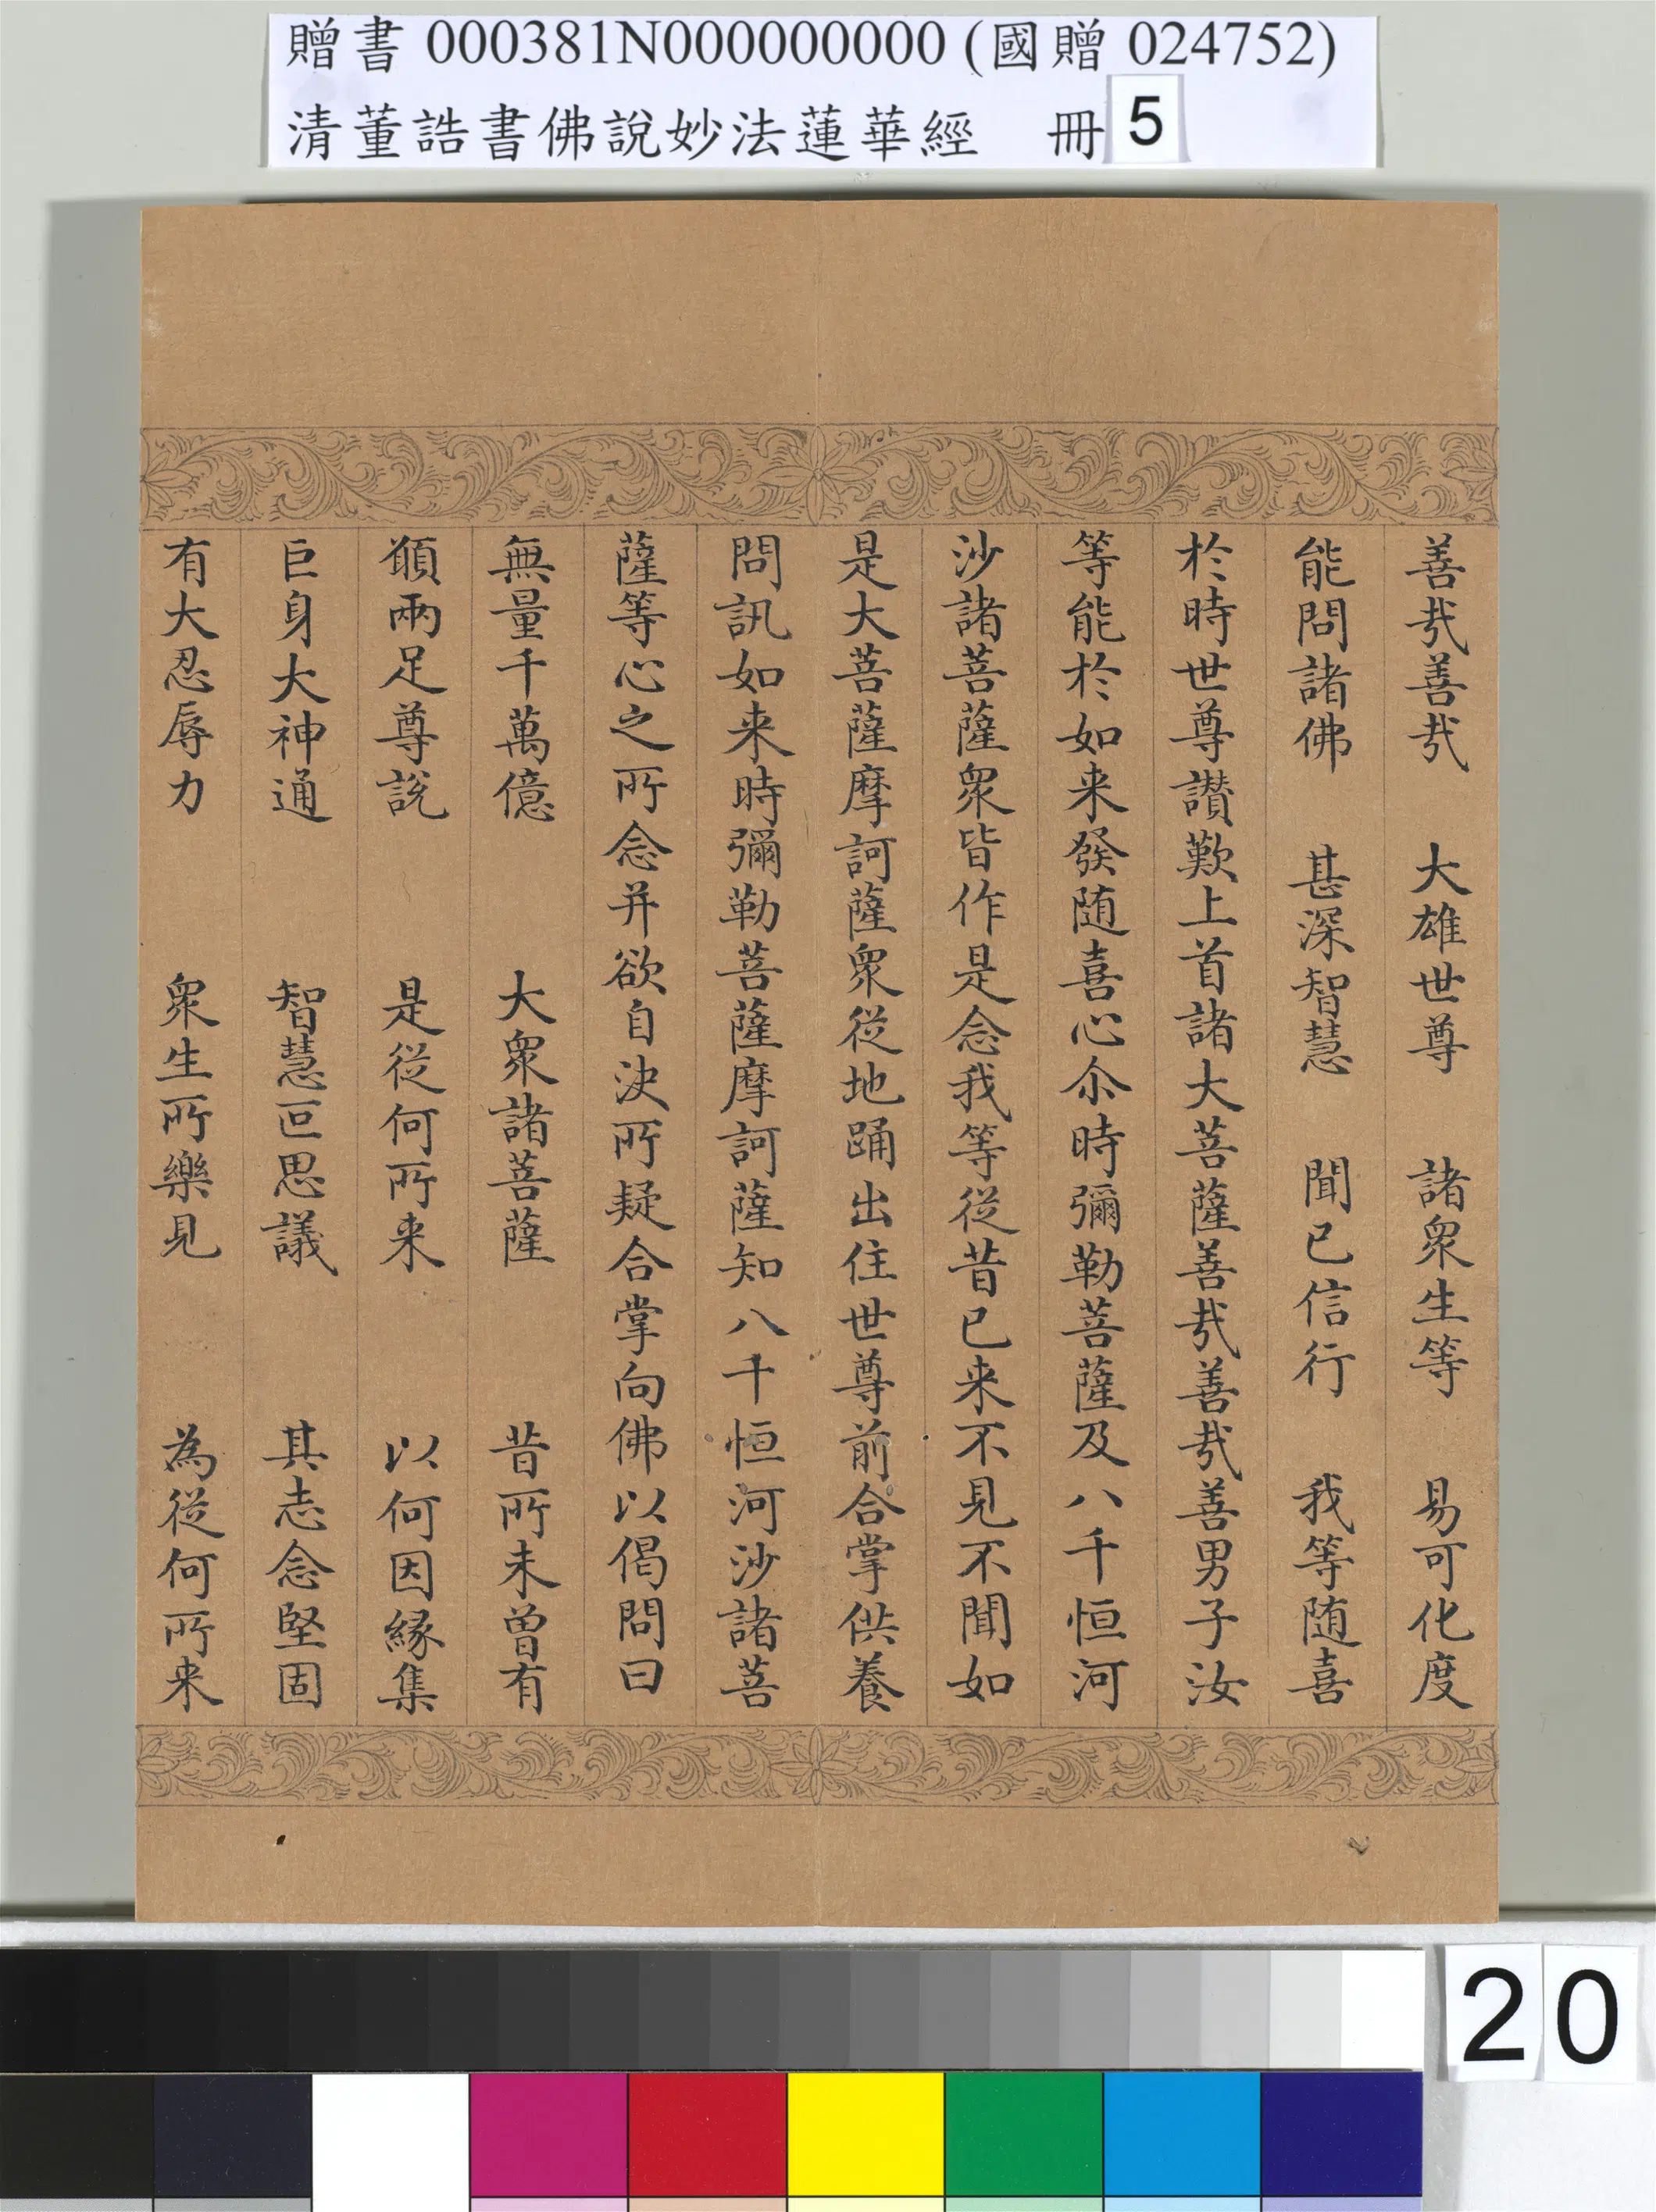 贈書 000381N000000000 (國贈 024752)
清董誥書佛說妙法蓮華經 冊 5
善㢤善㢤 大雄世尊 諸衆生等 易可化度
能問諸佛 甚深智慧 聞已信行 我等随喜
於時世尊讃歎上首諸大菩薩善㢤善㢤善男子汝
等能於如来發随喜心尒時彌勒菩薩及八千恒河
沙諸菩薩衆皆作是念我等從昔已来不見不聞如
是大菩薩摩訶薩衆從地踊出住世尊前合掌供養
問訊如来時彌勒菩薩摩訶薩知八千恒河沙諸菩
薩等心之所念并欲自決所疑合掌向佛以偈問曰
無量千萬億 大衆諸菩薩 昔所未曽有
願兩足尊說 是從何所来 以何因縁集
巨身大神通 智慧叵思議 其志念堅固
有大忍辱力 衆生所樂見 為從何所来
20